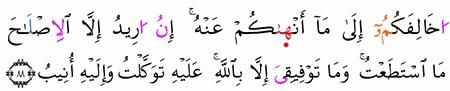 اخَالِفَكُمُۥٓ إِلَىٰ مَآ أَنْهَىٰكُمْ عَنْهُ ۚ إِنُ ارِيدُ إِلَّا اَلِاصْلَٰحَ
مَا اَسْتَطَعْتُ ۚ وَمَا تَوْفِيقِىَ إِلَّا بِاللَّهِ ۚ عَلَيْهِ تَوَكَّلْتُ وَإِلَيْهِ أُنِيبُ ٨٨